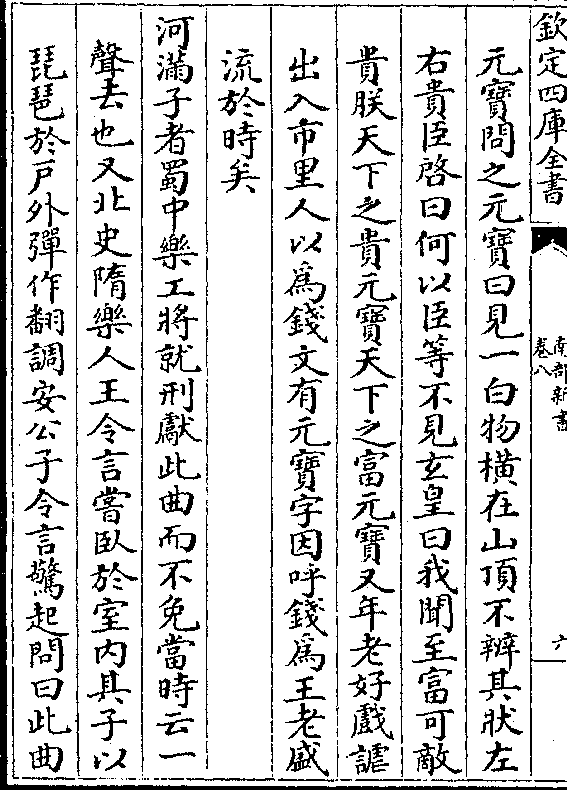 欽定四庫全書
南部新書
卷八
六
元寶問之元寶曰見一白物橫在山頂不辨其狀左
右貴臣啓曰何以臣等不見玄皇曰我聞至富可敵
貴朕天下之貴元寶天下之富元寶又年老好戲謔
出入市里人以爲錢文有元寶字因呼錢爲王老盛
流於時矣
河滿子者蜀中樂工將就刑獻此曲而不免當時云一
聲去也又北史隋樂人王令言嘗臥於室内其子以
琵琶於戸外彈作翻調安公子令言驚起問曰此曲